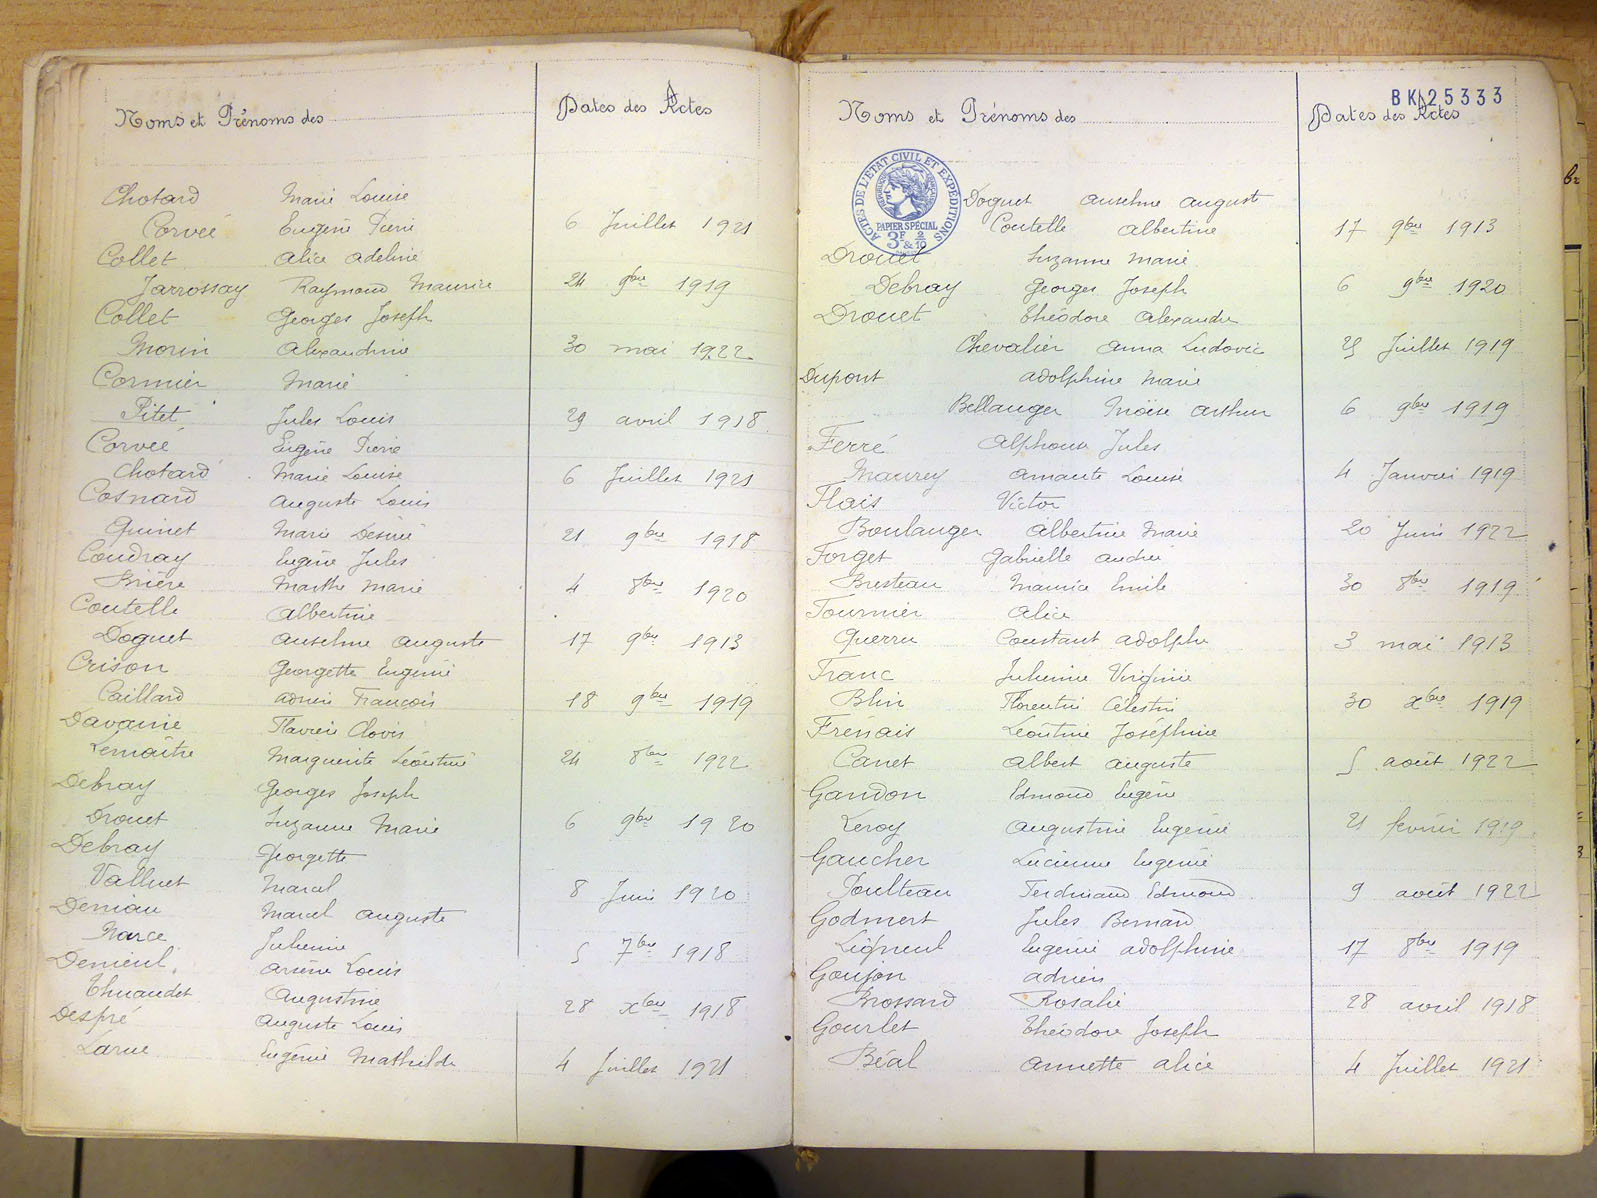 Noms et Prénoms des
Dates des Actes
Chotard Marie Louise
Corvée Eugène Pierre 6 Juillet 1921
Collet Alice Adeline
Jarrossay Raymond Maurice 24 9bre 1919
Collet Georges Joseph
Morin Alexandrine 30 mai 1922
Cormier Marie
Pitet Jules Louis 29 avril 1918
Corvée Eugène Pierre
Chotard Marie Louise 6 Juillet 1921
Cosnard Auguste Louis
Guinet Marie Désirée 21 9bre 1918
Coudray Eugène Jules
Brière Marthe Marie 4 8bre 1920
Coutelle Albertine
Doguet Anselme Auguste 17 9bre 1913
Crison Georgette Eugénie
Caillard Adrien François 18 9bre 1919
Davanie Flavien Clovis
Lemaître Marguerite Léontine 24 8bre 1922
Debray Georges Joseph
Drouet Suzanne Marie 6 9bre 1920
Debray Georgette
Valluet Marcel 8 Juin 1920
Deniau Marcel Auguste
Narce Julienne 5 7bre 1918
Denieul Arsène Louis
Thuaudet Augustine 28 xbre 1918
Despré Auguste Louis
Larue Eugénie Mathilde 4 Juillet 1921
BK 25333
Noms et Prénoms des
Dates des Actes
ACTES DE L'ETAT CIVIL ET EXPEDITIONS
PAPIER SPECIAL
3F & 2/10
Doguet Anselme Auguste
Coutelle Albertine 17 9bre 1913
Drouet Suzanne Marie
Debray Georges Joseph 6 9bre 1920
Drouet Théodore Alexandre
Chevalier Anna Ludovic 25 Juillet 1919
Dupont Adolphine Marie
Bellanger Moïse Arthur 6 9bre 1919
Ferré Alphonse Jules
Maurey Amante Louise 4 Janvier 1919
Flais Victor
Boulanger Albertine Marie 20 Juin 1922
Forget Gabrielle Andrée
Bresteau Maurice Emile 30 8bre 1919
Fournier Alice
Guerru Constant Adolphe 3 mai 1913
Franc Julienne Virginie
Blin Florentin Célestin 30 xbre 1919
Frénais Léontine Joséphine
Canet Albert Auguste 5 août 1922
Gandon Edmond Eugène
Leroy Augustine Eugénie 21 février 1919
Gaucher Lucienne Eugénie
Poulteau Ferdinand Edmond 9 août 1922
Godmert Jules Bernard
Ligneul Eugénie Adolphine 17 8bre 1919
Goujon Adrien
Brossard Rosalie 28 avril 1918
Gourlet Théodore Joseph
Béal Annette Alice 4 Juillet 1921